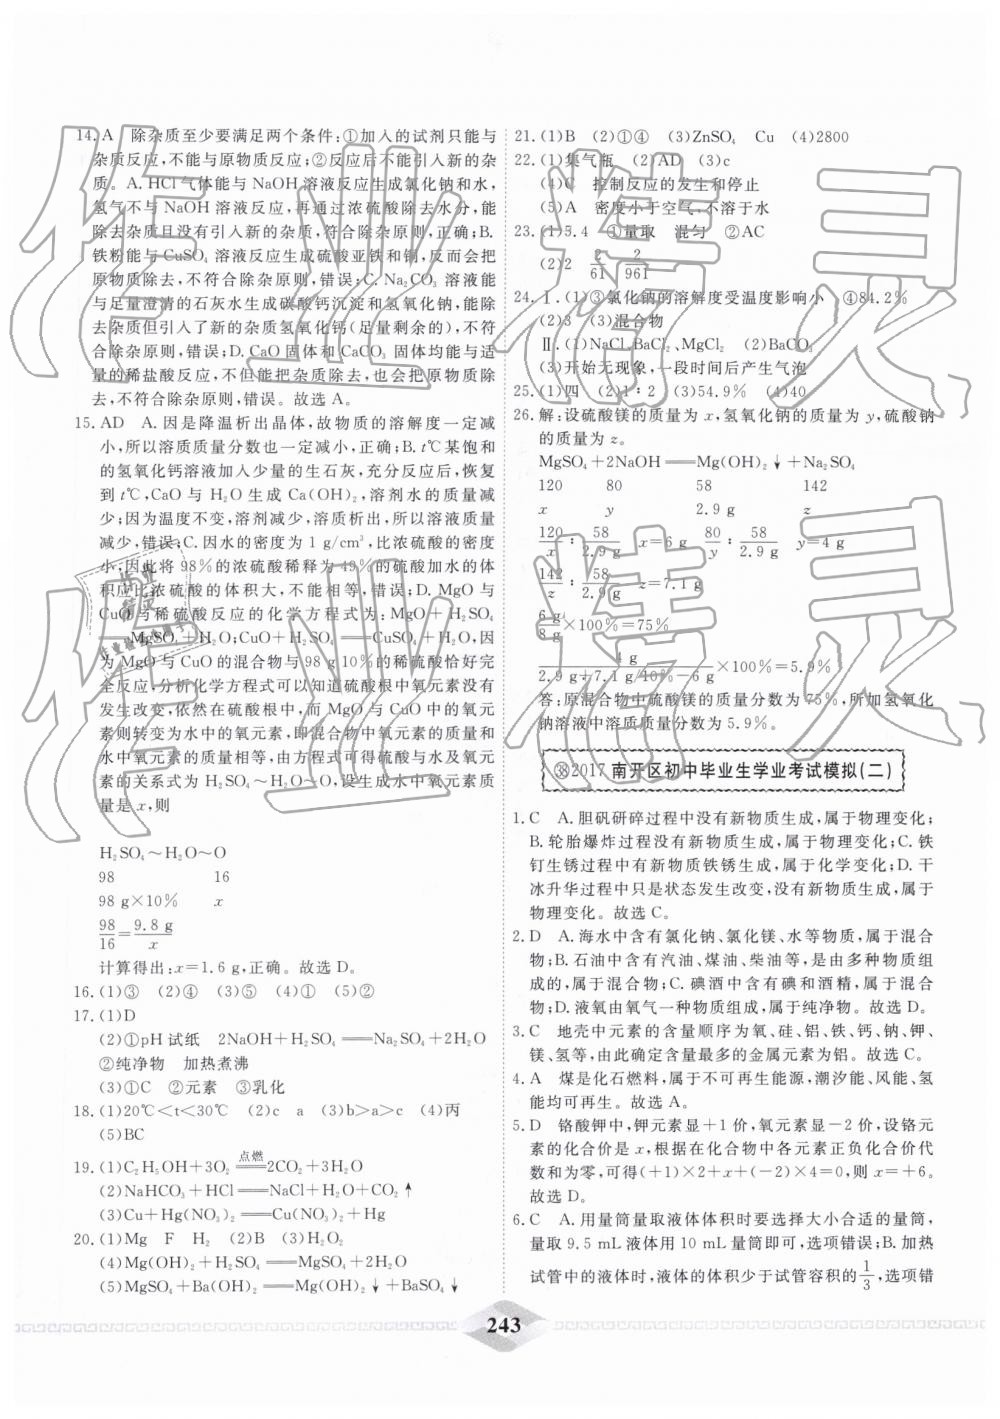 14. A　除杂质至少要满足两个条件:①加入的试剂只能与
杂质反应,不能与原物质反应;②反应后不能引入新的杂
质。A. HCl 气体能与 NaOH 溶液反应生成氯化钠和水,
氢气不与 NaOH 溶液反应,再通过浓硫酸除去水分,能
除去杂质且没有引入新的杂质,符合除杂原则,正确;B.
铁粉能与 CuSO₄ 溶液反应生成硫酸亚铁和铜,反而会把
原物质除去,不符合除杂原则,错误;C. Na₂CO₃ 溶液能
与足量澄清的石灰水生成碳酸钙沉淀和氢氧化钠,能除
去杂质但引入了新的杂质氢氧化钙(足量剩余的),不符
合除杂原则,错误;D. CaO 固体和 CaCO₃ 固体均能与适
量的稀盐酸反应,不但能把杂质除去,也会把原物质除
去,不符合除杂原则,错误。故选 A。
15. AD　A. 因是降温析出晶体,故物质的溶解度一定减
小,所以溶质质量分数也一定减小,正确;B. t℃某饱和
的氢氧化钙溶液加入少量的生石灰,充分反应后,恢复
到 t℃,CaO 与 H₂O 生成 Ca(OH)₂,溶剂水的质量减
少;因为温度不变,溶剂减少,溶质析出,所以溶液质量
减少,错误;C. 因水的密度为 1 g/cm³,比浓硫酸的密度
小,因此将 98%的浓硫酸稀释为 49%的硫酸加水的体
积应比浓硫酸的体积大,不能相等,错误;D. MgO 与
CuO 与稀硫酸反应的化学方程式为:MgO+H₂SO₄
══MgSO₄+H₂O;CuO+H₂SO₄══CuSO₄+H₂O,因
为 MgO 与 CuO 的混合物与98 g 10%的稀硫酸恰好完
全反应,分析化学方程式可以知道硫酸根中氧元素没有
发生改变,依然在硫酸根中,而 MgO 与 CuO 中的氧元
素则转变为水中的氧元素,即混合物中氧元素的质量和
水中氧元素的质量相等,由方程式可得硫酸与水及氧元
素的关系式为 H₂SO₄~H₂O~O,设生成水中氧元素质
量是 x,则
H₂SO₄~H₂O~O
98　　　　16
98 g×10%　　x
98/16=9.8 g/x
计算得出:x=1.6 g,正确。故选 D。
16. (1)③　(2)④　(3)⑤　(4)①　(5)②
17. (1)D
(2)①pH 试纸　2NaOH+H₂SO₄══Na₂SO₄+2H₂O
②纯净物　加热煮沸
(3)①C　②元素　③乳化
18. (1)20℃<t<30℃　(2)c　a　(3)b>a>c　(4)丙
(5)BC
19. (1)C₂H₅OH+3O₂ 点燃══ 2CO₂+3H₂O
(2)NaHCO₃+HCl══NaCl+H₂O+CO₂↑
(3)Cu+Hg(NO₃)₂══Cu(NO₃)₂+Hg
20. (1)Mg　F　H₂　(2)B　(3)H₂O₂
(4)Mg(OH)₂+H₂SO₄══MgSO₄+2H₂O
(5)MgSO₄+Ba(OH)₂══Mg(OH)₂↓+BaSO₄↓
21. (1)B　(2)①④　(3)ZnSO₄　Cu　(4)2800
22. (1)集气瓶　(2)AD　(3)c
(4)C　控制反应的发生和停止
(5)A　密度小于空气,不溶于水
23. (1)5.4　①量取　混匀　②AC
(2)2　2/61　2/961
24. Ⅰ. (1)③氯化钠的溶解度受温度影响小　④84.2%
(2)3　(3)混合物
Ⅱ. (1)NaCl、BaCl₂、MgCl₂　(2)BaCO₃
(3)开始无现象,一段时间后产生气泡
25. (1)四　(2)1∶2　(3)54.9%　(4)40
26. 解:设硫酸镁的质量为 x,氢氧化钠的质量为 y,硫酸钠
的质量为 z。
MgSO₄+2NaOH══Mg(OH)₂↓+Na₂SO₄
120　80　58　142
x　y　2.9 g　z
120/x=58/2.9 g　x=6 g　80/y=58/2.9 g　y=4 g
142/z=58/2.9 g　z=7.1 g
6 g/8 g×100%=75%
4 g/(2.9 g+7.1 g/10%-6 g)×100%=5.9%
答:原混合物中硫酸镁的质量分数为 75%,所加氢氧化
钠溶液中溶质质量分数为 5.9%。
㊳2017 南开区初中毕业生学业考试模拟(二)
1. C　A. 胆矾研碎过程中没有新物质生成,属于物理变化;
B. 轮胎爆炸过程没有新物质生成,属于物理变化;C. 铁
钉生锈过程中有新物质铁锈生成,属于化学变化;D. 干
冰升华过程中只是状态发生改变,没有新物质生成,属于
物理变化。故选 C。
2. D　A. 海水中含有氯化钠、氯化镁、水等物质,属于混合
物;B. 石油中含有汽油、煤油、柴油等,是由多种物质组
成的,属于混合物;C. 碘酒中含有碘和酒精,属于混合
物;D. 液氧由氧气一种物质组成,属于纯净物。故选 D。
3. C　地壳中元素的含量顺序为氧、硅、铝、铁、钙、钠、钾、
镁、氢等,由此确定含量最多的金属元素为铝。故选 C。
4. A　煤是化石燃料,属于不可再生能源,潮汐能、风能、氢
能均可再生。故选 A。
5. D　铬酸钾中,钾元素显+1 价,氧元素显-2 价,设铬元
素的化合价是 x,根据在化合物中各元素正负化合价代
数和为零,可得(+1)×2+x+(-2)×4=0,则 x=+6。
故选 D。
6. C　A. 用量筒量取液体体积时要选择大小合适的量筒,
量取 9.5 mL 液体用 10 mL 量筒即可,选项错误;B. 加热
试管中的液体时,液体的体积少于试管容积的1/3,选项错
243
作业精灵
作业精灵
作业
精灵